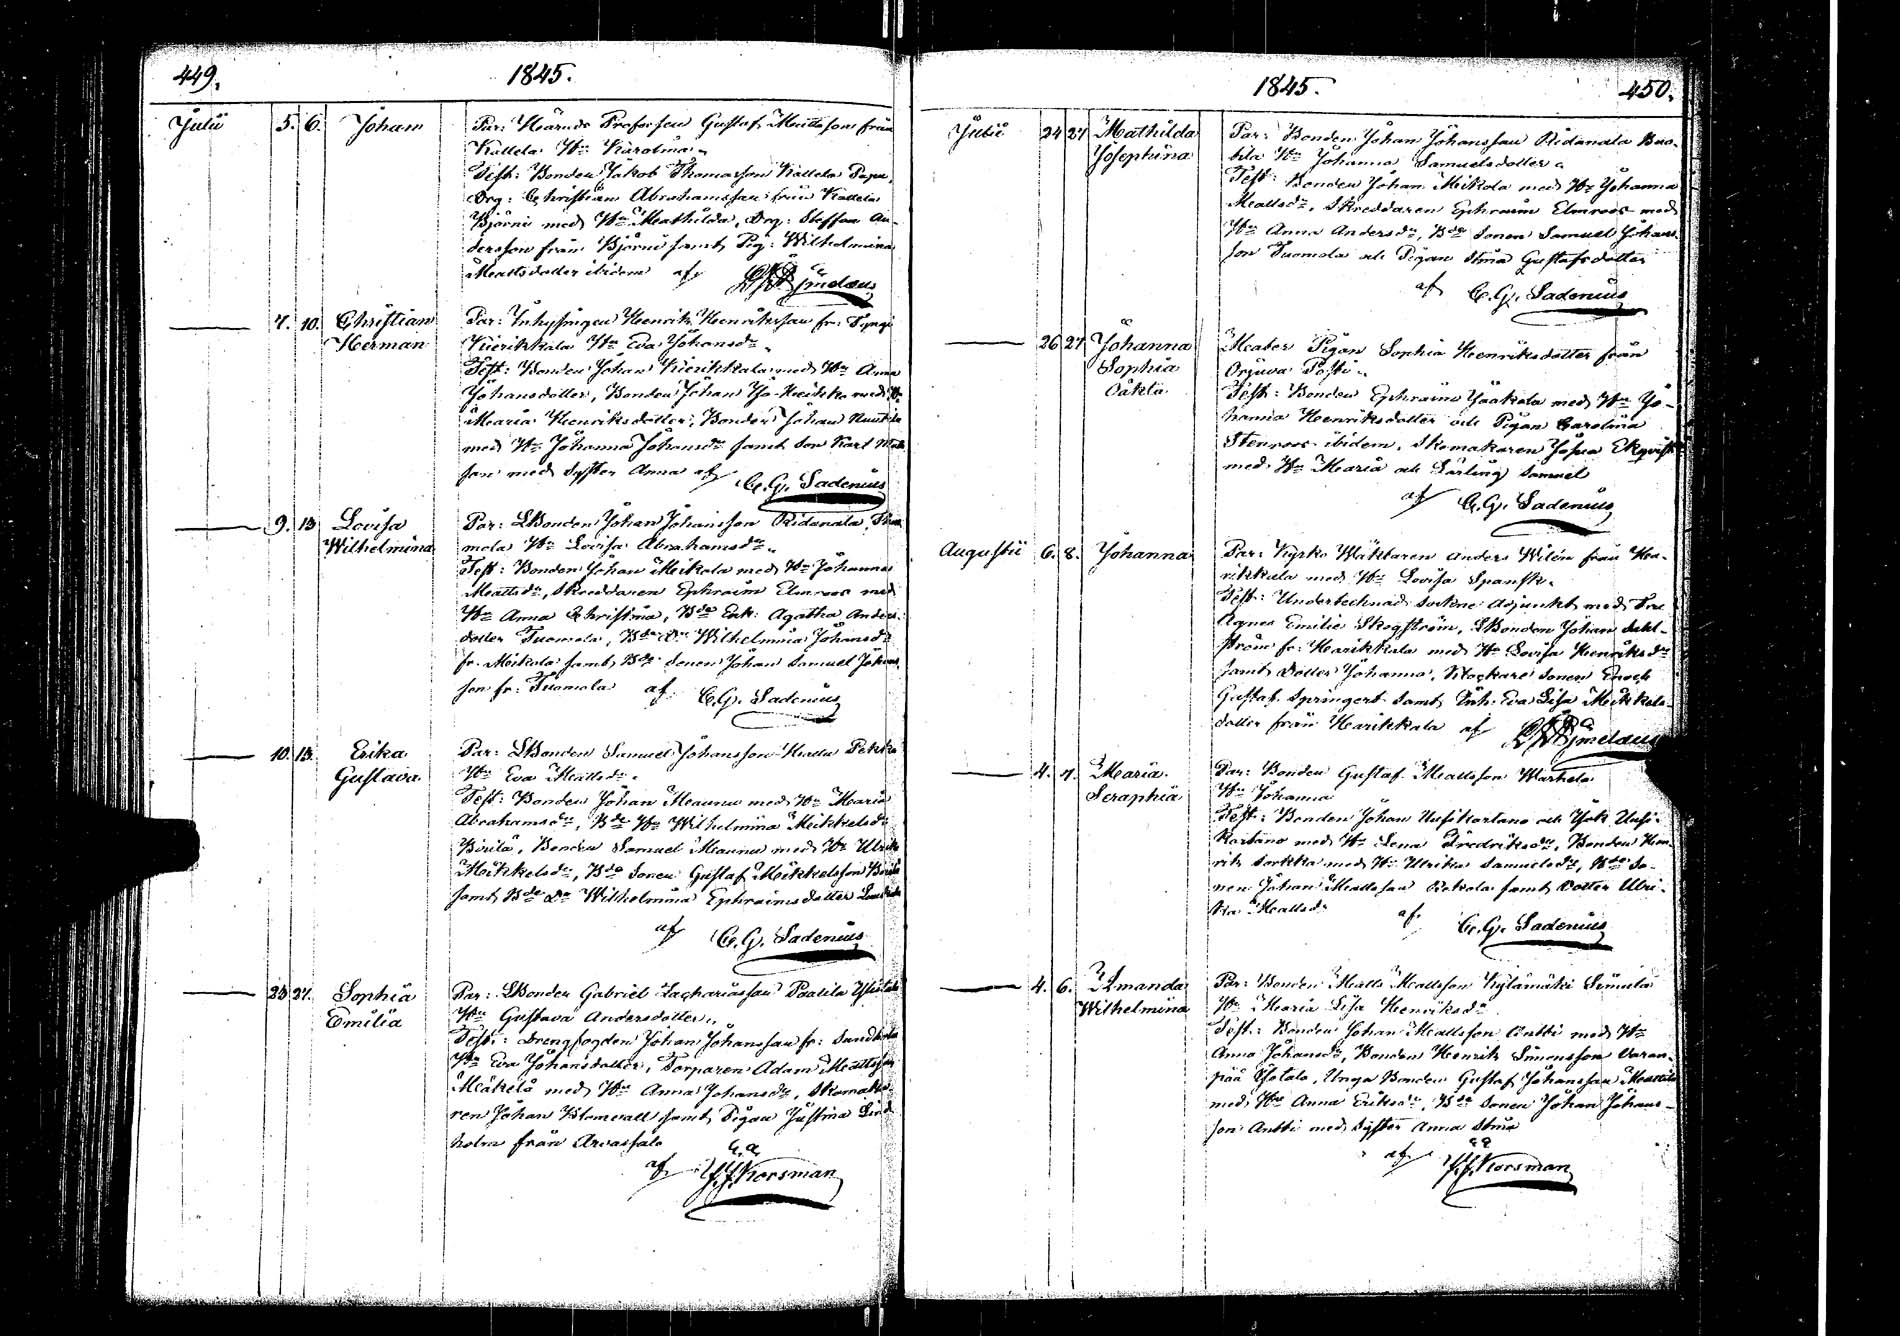 449.
1845.
Julii 5. 6. Johan
Par: Gustaf Mattsson från
Kallela H:u Karolina.
Test: Bonden Jakob Thomasson Kallela
Drg: Christian Abrahamsson från Kallela
Björni med H:u Mathilda, Drg: Staffan An-
dersson från Björni samt Pig: Wilhelmina
Mattsdotter ibidem af
7. 10. Christian
Herman
Par: Inhysingen Henrik Henriksson fr:
Kierikkala H:u Eva Johansd:r
Test: Bonden Johan Kierikkala med H:u Anna
Johansdotter, Bonden Johan med H:u
Maria Henriksdotter, Bonden Johan
med H:u Johanna Johansd:r samt Son Karl
son med Syster Anna af C. G. Sadenius
9. 13 Lovisa
Wilhelmina
Par: LBonden Johan Johansson Ridanala, Tuo-
mola H:u Lovisa Abrahamsd:r
Test: Bonden Johan Meikola med H:u Johanna
Mattsd:r, Skreddaren Ephraim Elmroos med
H:u Anna Christina, B:de Enk: Agatha Anders-
dotter Tuomola, B:de D:r Wilhelmina Johansd:r
fr: Meikola samt B:de Sonen Johan Samuel Johans-
son fr: Tuomola af C. G. Sadenius
10. 13. Erika
Gustava
Par: LBonden Samuel Johansson Pekka
H:u Eva Mattsd:r
Test: Bonden Johan Maunu med H:u Maria
Abrahamsd:r, B:de H:u Wilhelmina Mikkelsd:r
Bonden Samuel Maunu med H:u Ulrika
Mikkelsd:r, B:de Sonen Gustaf Mikkelsson
samt B:de D:r Wilhelmina Ephraimsdotter
af C. G. Sadenius
23 27. Sophia
Emilia
Par: LBonden Gabriel Zachariasson Paalila
H:u Gustava Andersdotter
Test: Drengfogden Johan Johansson fr:
H:u Eva Johansdotter, Torparen Adam Mattsson
Mäkelä med H:u Anna Johansd:r, Skomaka-
ren Johan Blomvall samt Pigan Justina Lind-
holm från Arvassalo
af J. J. Korsman
1845.
450.
Julii 24 27 Mathilda
Josephina
Par: Bonden Johan Johansson Ridanala
H:u Johanna Samuelsdotter
Test: Bonden Johan Meikola med H:u Johanna
Mattsd:r, Skreddaren Ephraim Elmroos med
H:u Anna Andersd:r, B:de Sonen Samuel Johans-
son Tuomola och Pigan Stina Gustafsdotter
af C. G. Sadenius
26 27 Johanna
Sophia
Oäkta
Mater Pigan Sophia Henriksdotter från
Test: Bonden Ephraim Jaakola med H:u Jo-
hanna Henriksdotter och Pigan Carolina
Stenroos ibidem, Skomakaren Josua Ekqvist
med H:u Maria och Lärling Samuel
af C. G. Sadenius
Augusti 6. 8. Johanna
Par: Kyrko Wäktaren Anders Wilén från Ha-
rikkala med H:u Lovisa Spansk.
Test: Undertecknad Sockne Adjunkt med Fru
Agnes Emilie Skogström, LBonden Johan Dahl-
ström fr: Harikkala med H:u Lovisa Henriksd:r
samt Dotter Johanna, Klockare Sonen Enoch
Gustaf Springert samt Inh: Eva Lisa Mikkels-
dotter från Harikkala af
4. 7. Maria
Seraphia
Par: Bonden Gustaf Mattsson Warhela
H:u Johanna
Test: Bonden Johan Uusikartano och Jak Uusi-
kartano med H:u Lena Fredriksd:r, Bonden Hen-
rik Sorkka med H:u Ulrika Samuelsd:r, B:de So-
nen Johan Mattsson samt Dotter Ulri-
ka Mattsd:r af C. G. Sadenius
4. 6. Amanda
Wilhelmina
Par: Bonden Matts Mattsson Kylämäki Simula
H:u Maria Lisa Henriksd:r
Test: Bonden Johan Mattsson Antti med H:u
Anna Johansd:r, Bonden Henrik Simonsson Varan-
pää Isotalo, Unga Bonden Gustaf Johansson Mattila
med H:u Anna Eriksd:r, B:de Sonen Johan Johans-
son Antti med Syster Anna Stina
af J. J. Korsman